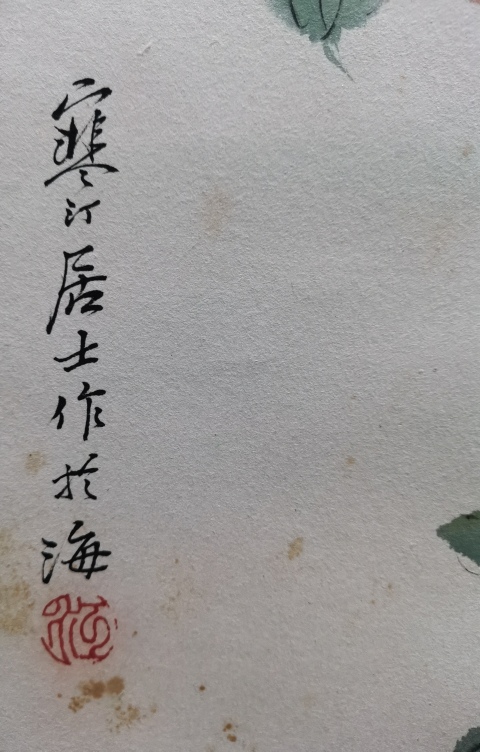 寒汀居士作於海